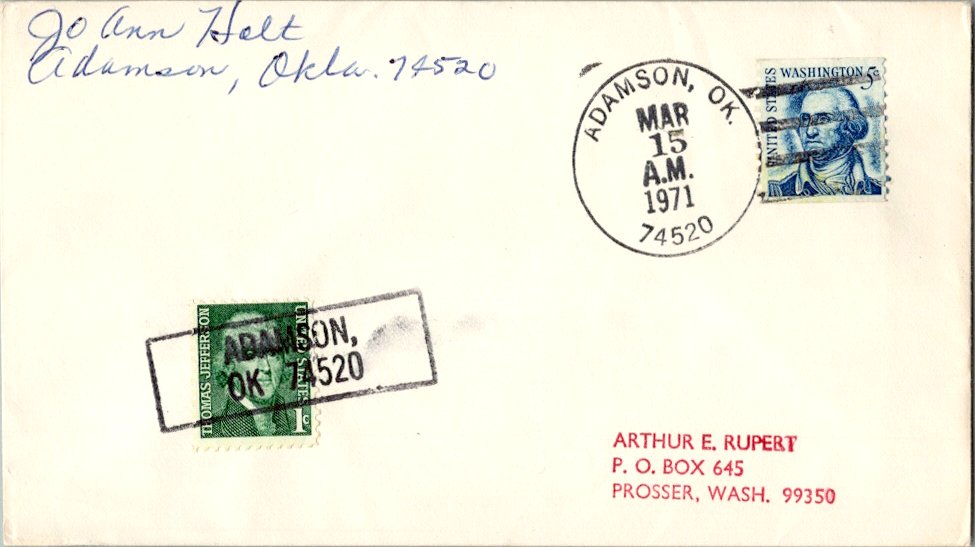 Jo Ann Holt
Adamson, Okla. 74520
ADAMSON, OK.
MAR
15
A.M.
1971
74520
UNITED STATES
WASHINGTON 5c
THOMAS JEFFERSON
UNITED STATES
1c
ADAMSON,
OK 74520
ARTHUR E. RUPERT
P. O. BOX 645
PROSSER, WASH. 99350